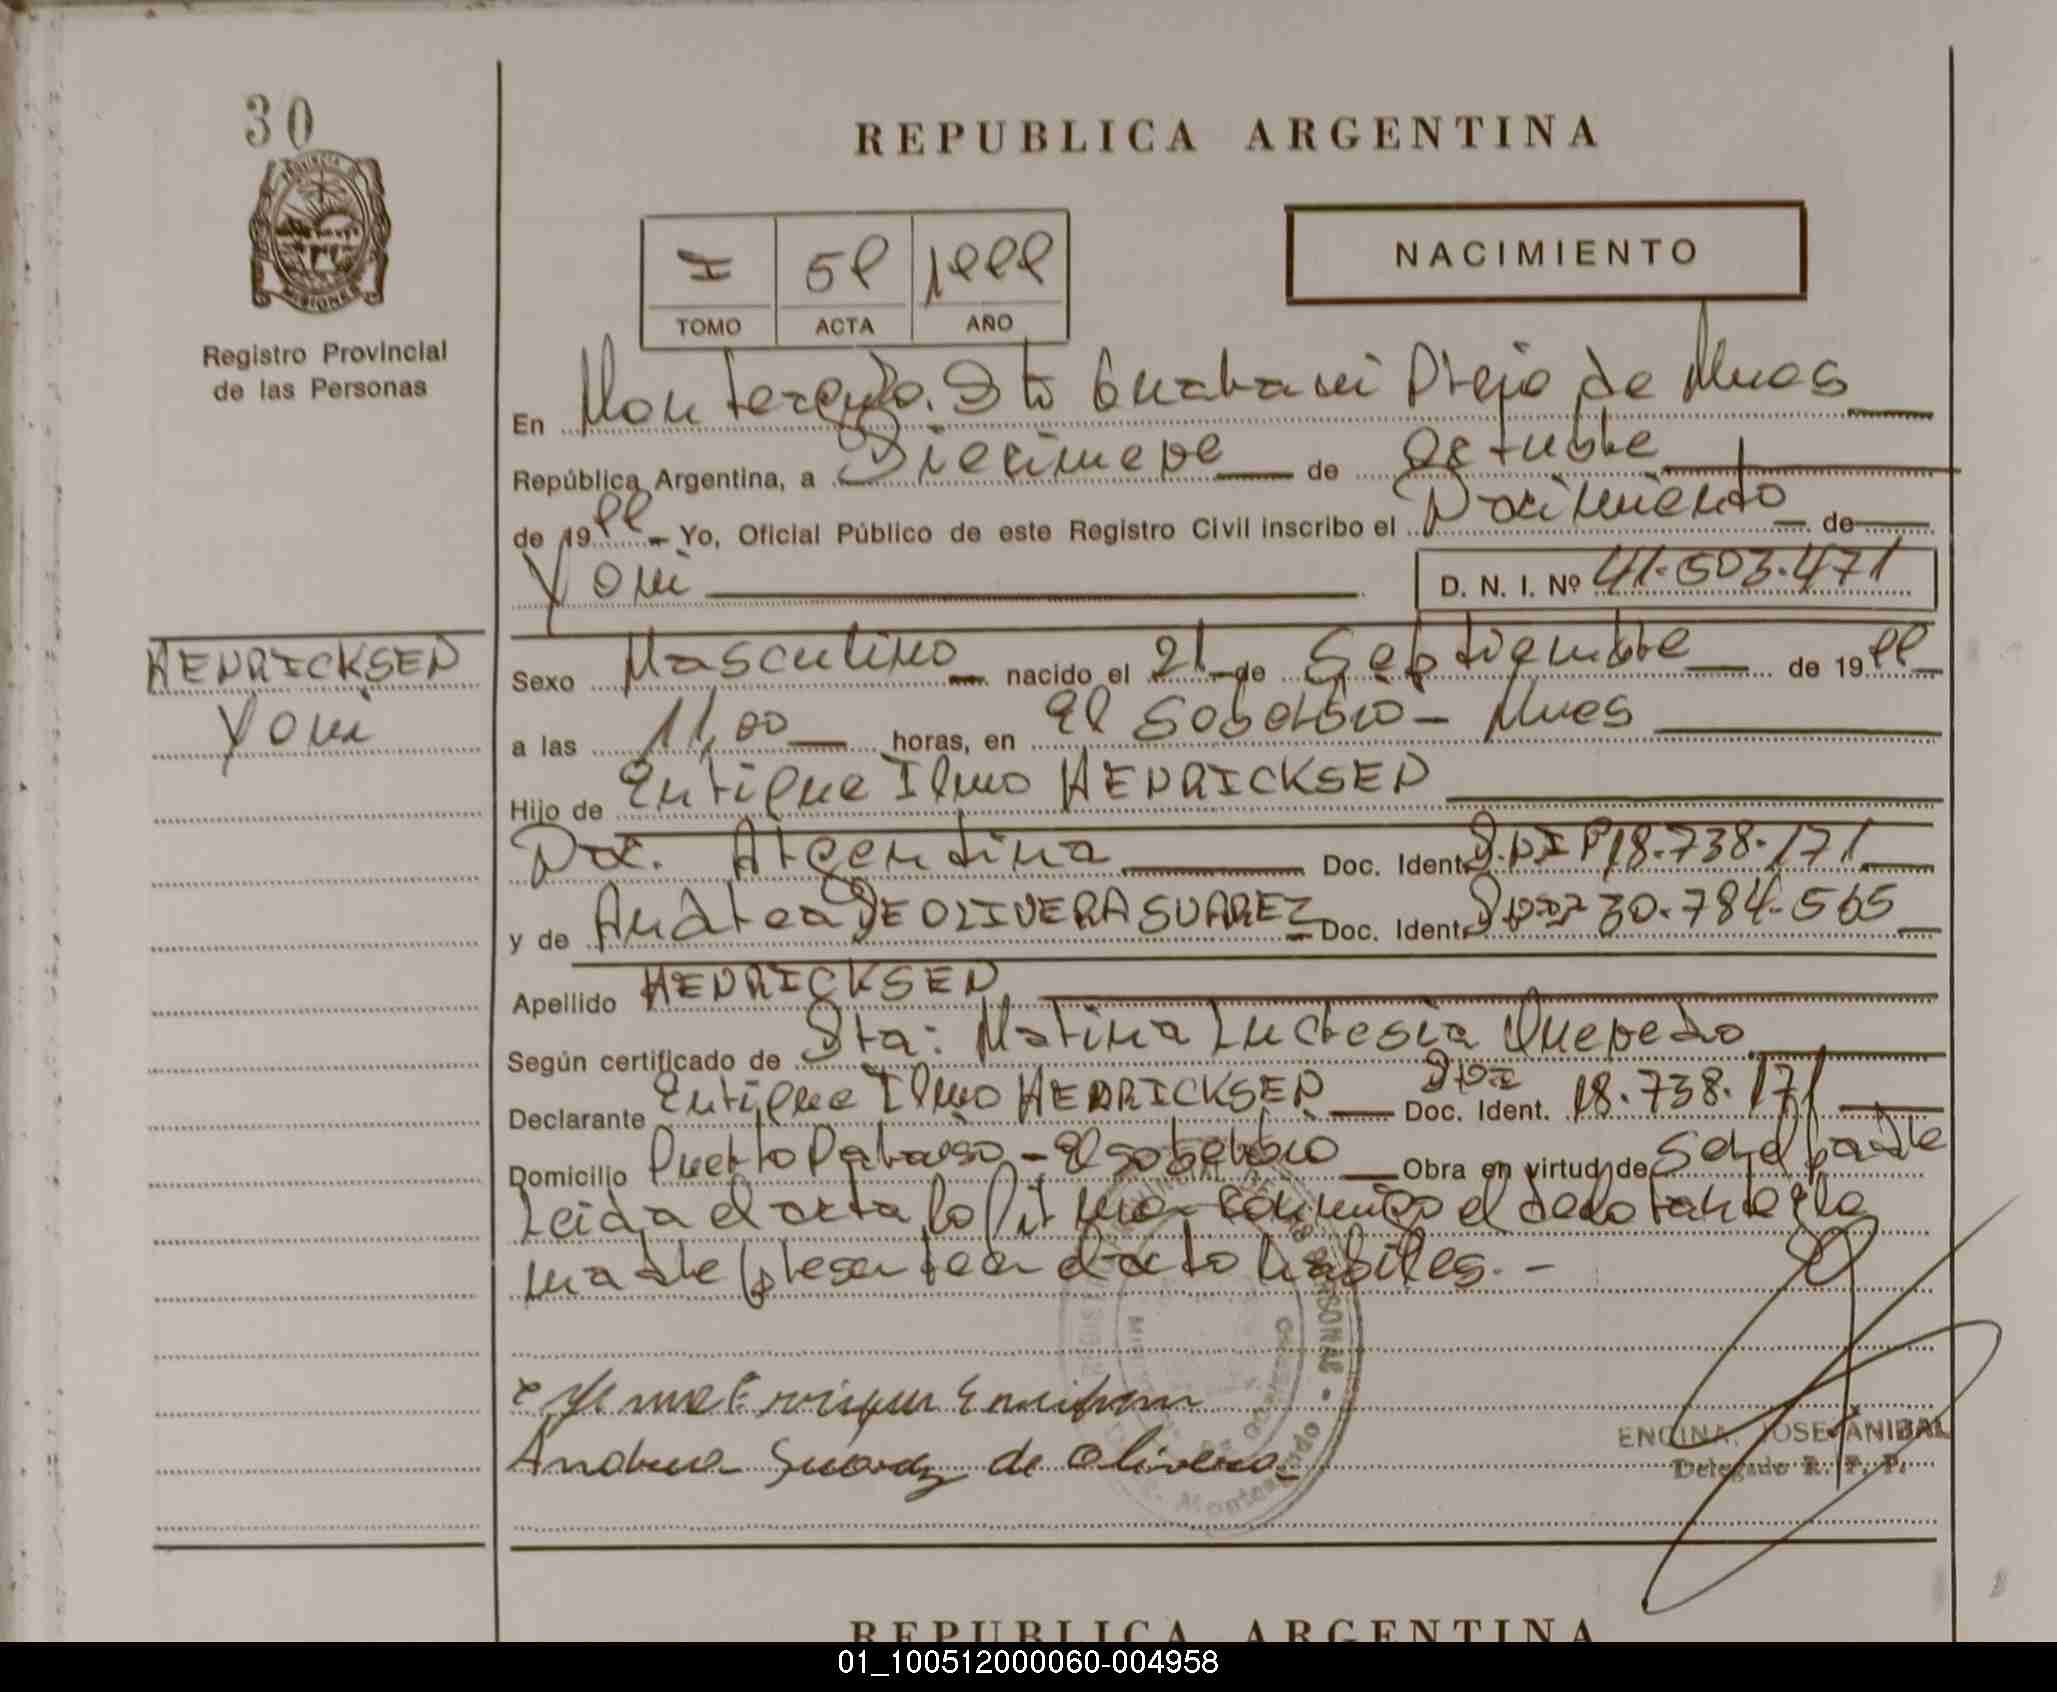 30
REPUBLICA ARGENTINA
NACIMIENTO
I 59 1999
TOMO ACTA AÑO
Registro Provincial
de las Personas
En Monteagudo. Dto Guarani Pcia de Mnes
República Argentina, a Diecinueve de Octubre
de 1999 Yo, Oficial Público de este Registro Civil inscribo el Nacimiento de
Yoni D. N. I. Nº 41.503.471
HENRICKSEN
Yoni
Sexo Masculino nacido el 21 de Septiembre de 1999
a las 11,00 horas, en El Soberbio - Mnes
Hijo de Enrique Ilmo HENRICKSEN
Nac. Argentina Doc. Ident. D.N.I Nº 18.738.171
y de Andrea DE OLIVERA SUAREZ Doc. Ident. DNI 30.784.565
Apellido HENRICKSEN
Según certificado de Sta: Marina Lucresia Quevedo
Declarante Enrique Ilmo HENRICKSEN Doc. Ident. DNI 18.738.171
Domicilio Puerto Paraiso - El soberbio Obra en virtud de Ser el padre
Leida el acta la firma conmigo el declarante y la
madre presente en el acto habiles. -
Andrea Suarez de olivera
ENCINA, JOSE ANIBAL
Delegado R. P. P.
REPUBLICA ARGENTINA
01_100512000060-004958